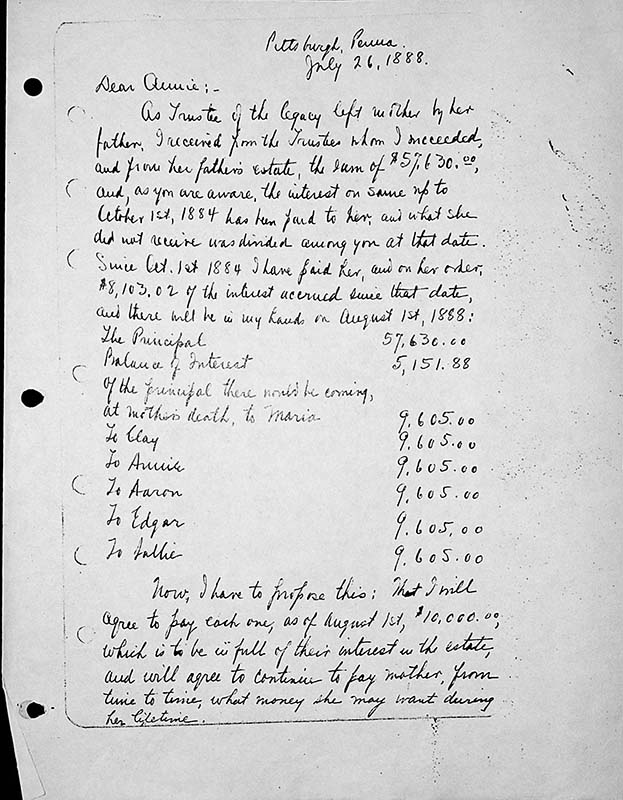 Pittsburgh, Penna.
July 26, 1888.
Dear Annie;-
As Trustee of the legacy left mother by her
father, I received from the Trustees whom I succeeded,
and from her father's estate, the sum of $57,630.00,
and, as you are aware, the interest on same up to
October 1st, 1884 has been paid to her, and what she
did not receive was divided among you at that date.
Since Oct. 1st 1884 I have paid her, and on her order,
$8,103.02 of the interest accrued since that date,
and there will be in my hands on August 1st, 1888:
The Principal 57,630.00
Balance of Interest 5,151.88
Of the principal there would be coming,
at mother's death, to Maria 9,605.00
To Clay 9,605.00
To Annie 9,605.00
To Aaron 9,605.00
To Edgar 9,605,00
To Sallie 9,605.00
Now, I have to propose this: That I will
agree to pay each one, as of August 1st, $10,000.00,
which is to be in full of their interest in the estate,
and will agree to continue to pay mother, from
time to time, what money she may want during
her lifetime.